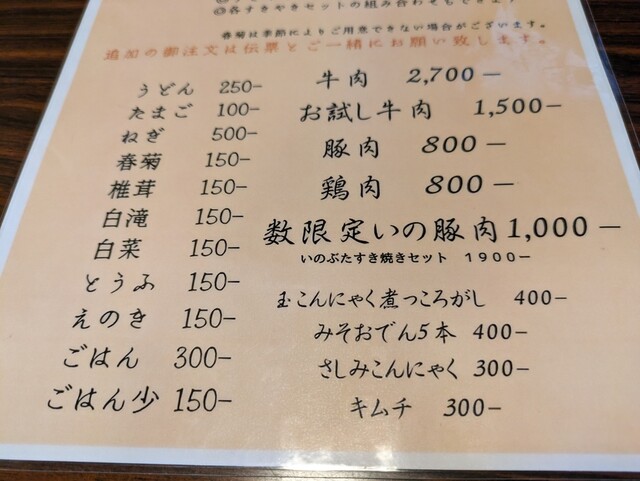 ◎各すきやきセットの組み合わせもできます
春菊は季節によりご用意できない場合がございます。
追加の御注文は伝票とご一緒にお願い致します。
うどん 250-
たまご 100-
ねぎ 500-
春菊 150-
椎茸 150-
白滝 150-
白菜 150-
とうふ 150-
えのき 150-
ごはん 300-
ごはん少 150-
牛肉 2,700-
お試し牛肉 1,500-
豚肉 800-
鶏肉 800-
数限定いの豚肉 1,000-
いのぶたすき焼きセット 1900-
玉こんにゃく煮っころがし 400-
みそおでん5本 400-
さしみこんにゃく 300-
キムチ 300-